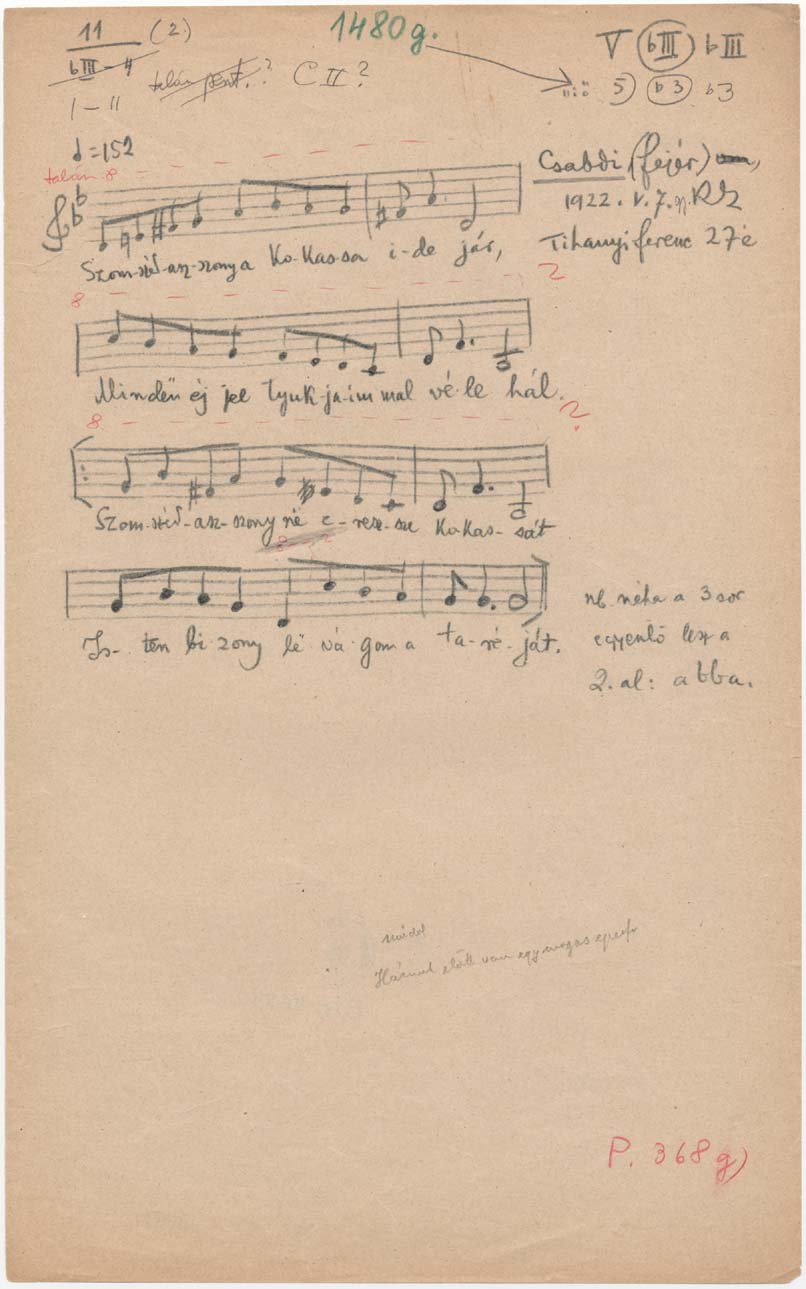 11 (2.)
1480 g.
V bIII bIII
bIII – 4
talán pent.? C II?
5) b3 b3
I – II
♩=152
talán 8
Csabdi (fejér)
1922. V. 7.
Tihanyi ferenc 27 é
Szom-széd-asz-szonya Ko-kas-sa i-de jár,
2
8
Minden éj jel tyuk-ja-im mal vé-le hál.
8
2
Szom-széd-asz-szony né e-resz-sze Ko-kas-sát
Is-ten bi-zony lë vá-gom a ta-ré-ját.
nb. néha a 3 sor
egyenlő lesz a
2.al: abba.
előtt van egy magas
P. 368 g)